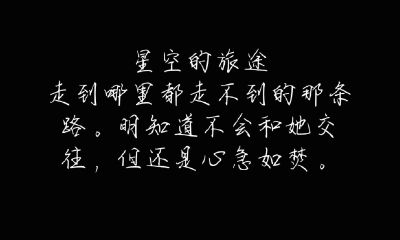 星空的旅途
走到哪里都走不到的那条
路。明知道不会和她交
往，但还是心急如焚。